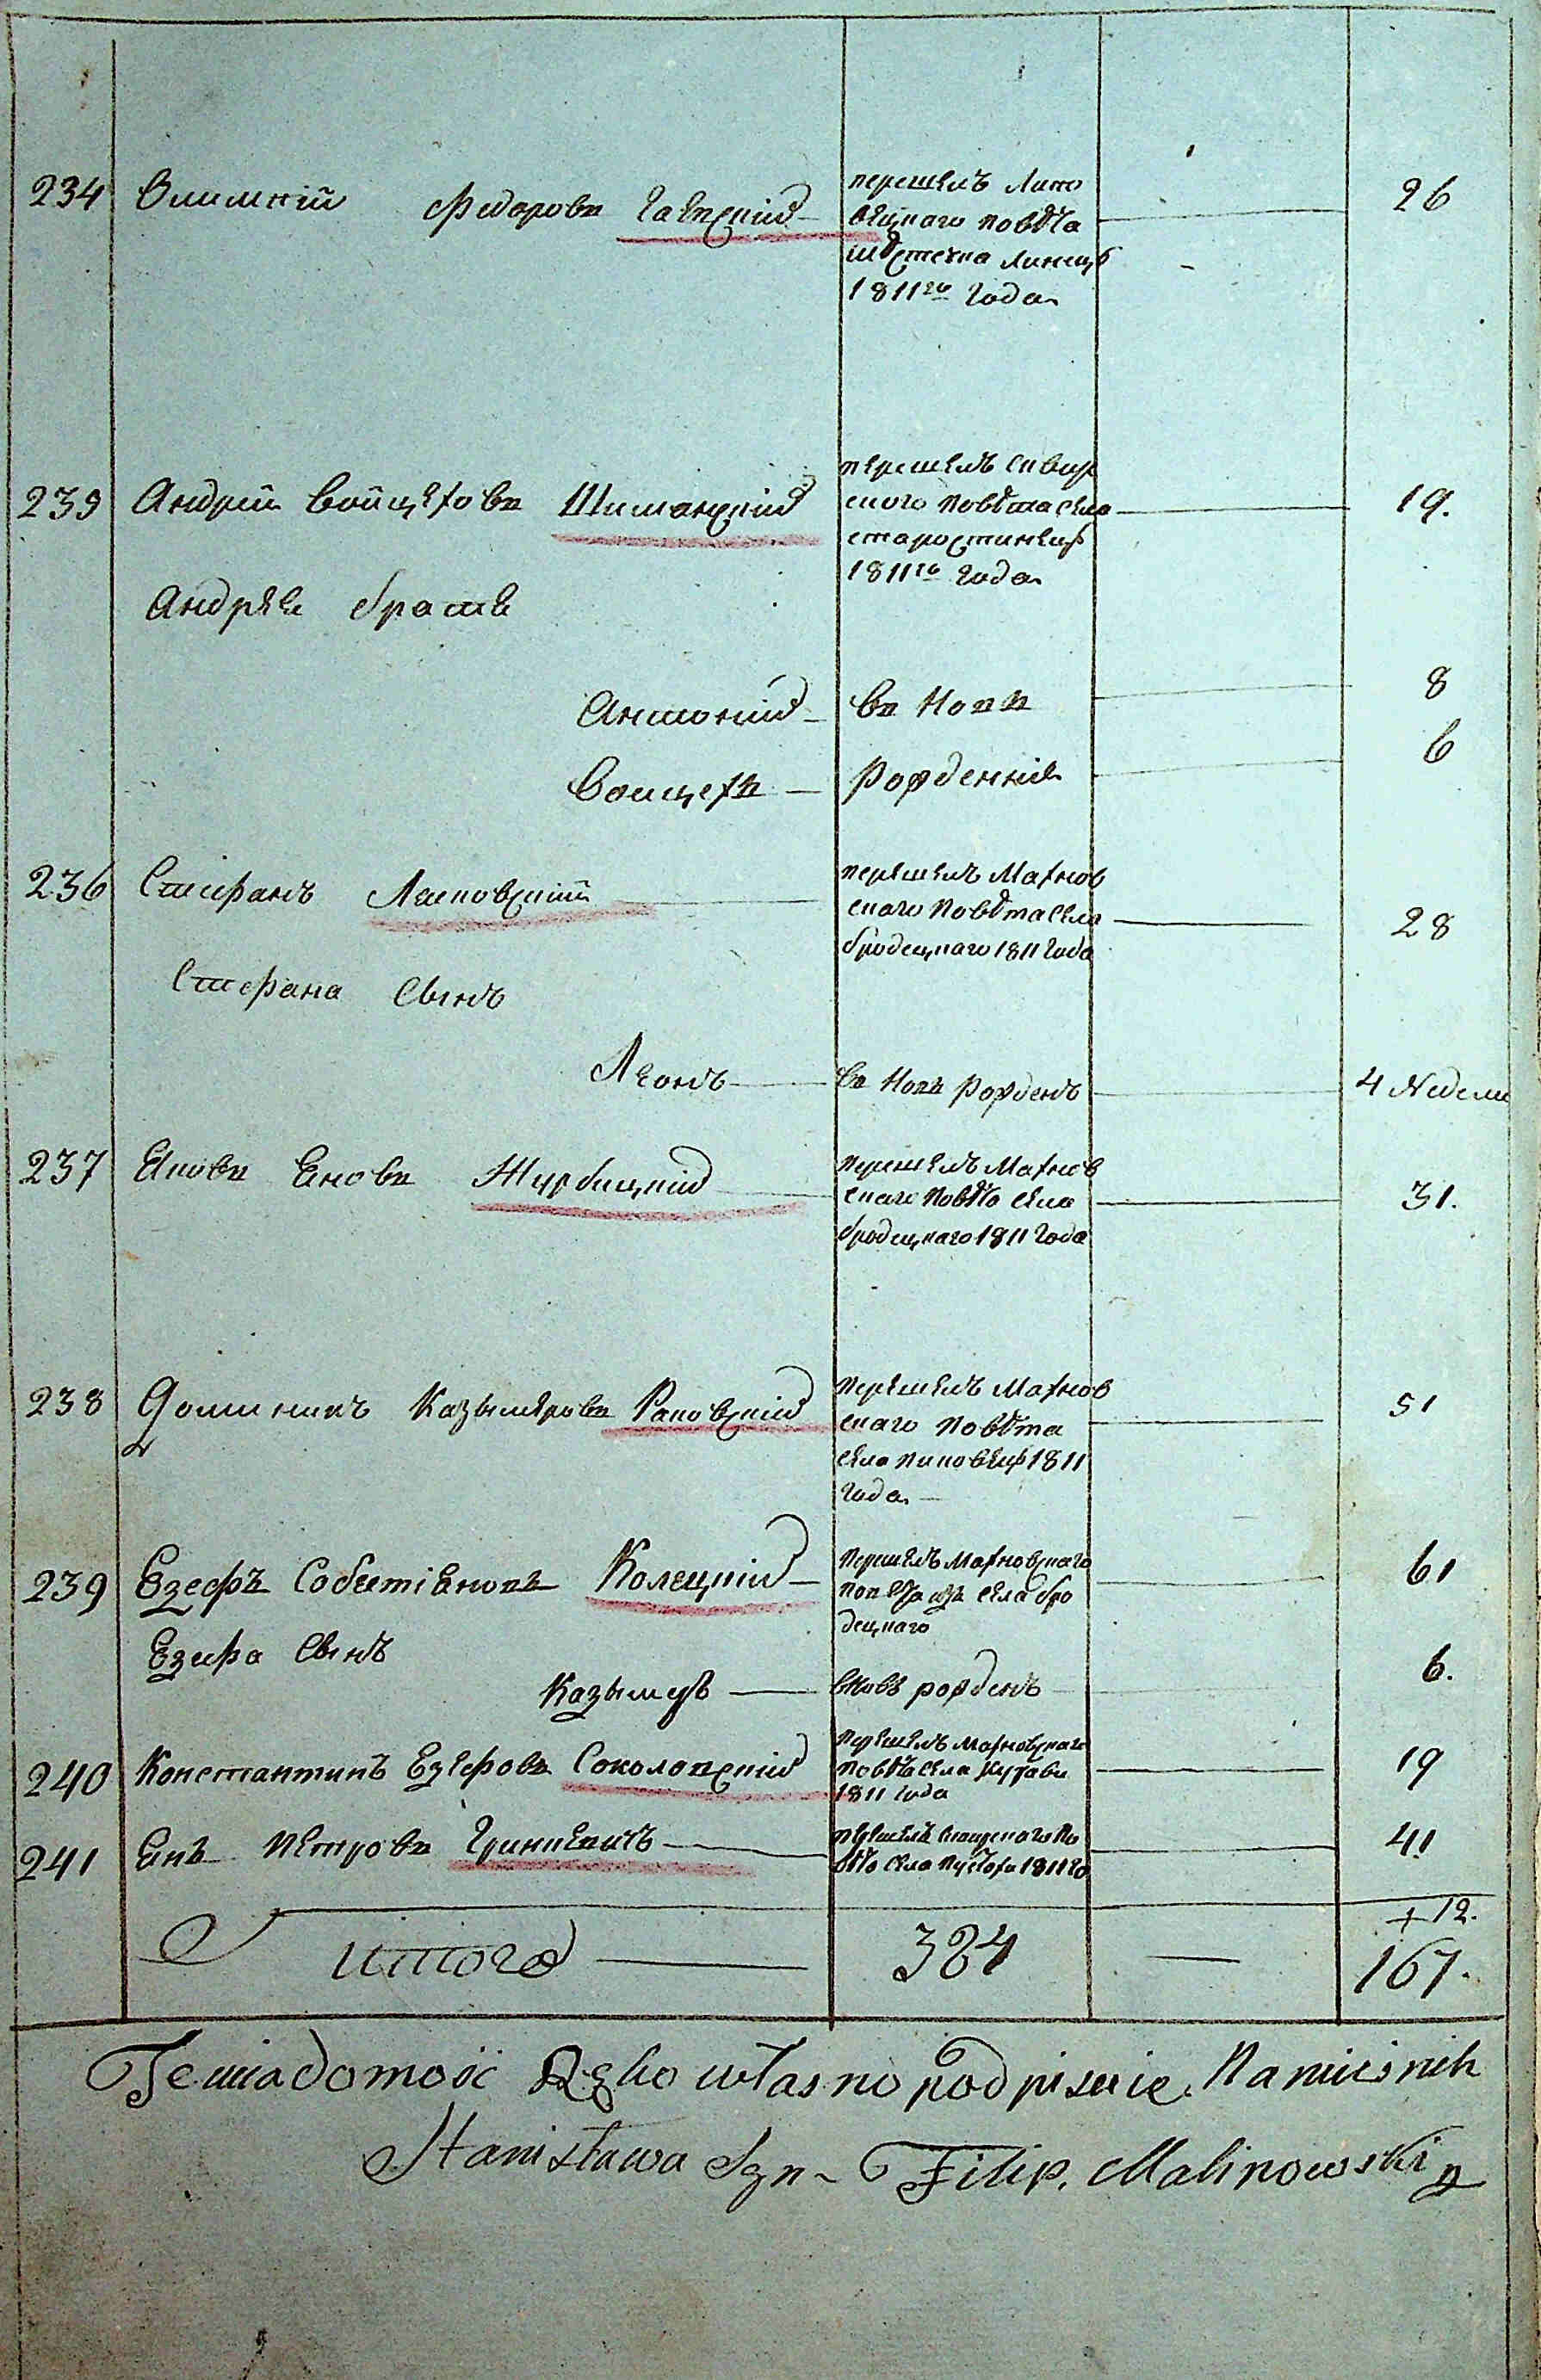 234 Филипій Федоровъ Гаевскій перешелъ Липо 26
вецкаго повѣта
мѣстечка Линецъ
1811го Года
235 Андрій Войцеховъ Шиманскій перешелъ сквир 19.
ского повѣта села
старостинецъ
1811го Года
Андрея братя
Антоній въ новѣ 8
Воицехъ рожденнія 6
236 Стефанъ Ляповскій перешелъ Махнов 28
скаго повѣта села
бродецкаго 1811 Года
Стефана сынъ
Леонъ въ новѣ рожденъ 4 Недели
237 Яковъ Яновъ Журбицкій перешелъ Махнов 31.
скаго повѣта села
бродецкаго 1811 Года
238 Доминикъ Казымеровъ Раковскій перешелъ Махнов 51
скаго повѣта
села 1811
Года
239 Езефъ Колецкій перешелъ Махновскаго 61
села бро
децкаго
Езефа сынъ
Казымеръ вновѣ рожденъ 6.
240 Константинъ Езефовъ Соколовскій перешелъ Махновскаго 19
повѣта села
1811 Года
241 Янъ Петровъ Гриневичъ 41
села 1811 го
+ 12.
Итого 324 167.
Te wiadomość Ręko własno podpisuie Namiesnik
Stanisława Syn Filip. Malinowski